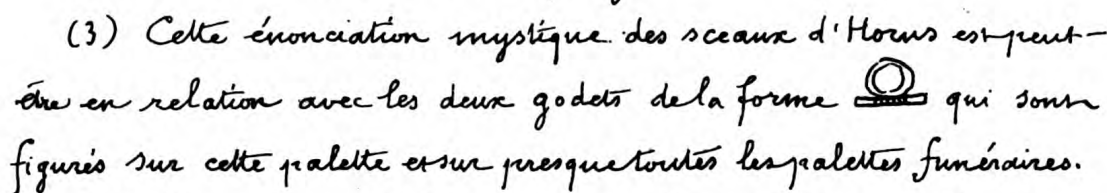 (3) Cette énonciation mystique des sceaux d'Horus est peut-
être en relation avec les deux godets de la forme 𓍶 qui sont
figurés sur cette palette et sur presque toutes les palettes funéraires.